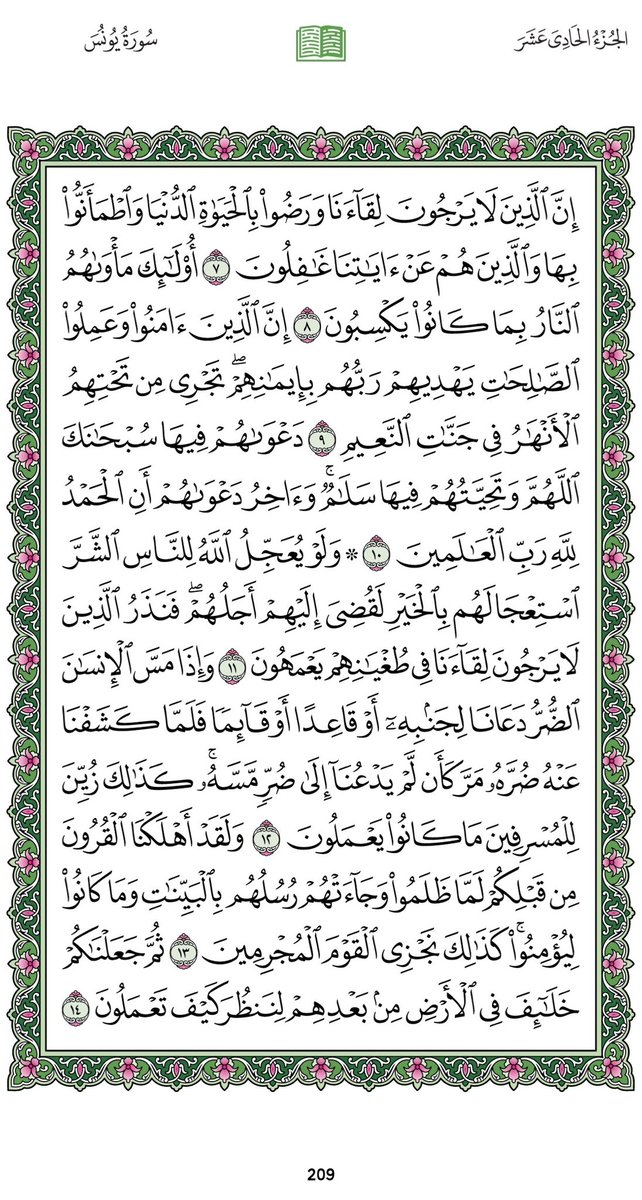 الجُزْءُ الحَادِىَ عَشَرَ
سُورَةُ يُونُسَ
إِنَّ ٱلَّذِينَ لَا يَرْجُونَ لِقَآءَنَا وَرَضُوا۟ بِٱلْحَيَوٰةِ ٱلدُّنْيَا وَٱطْمَأَنُّوا۟
بِهَا وَٱلَّذِينَ هُمْ عَنْ ءَايَـٰتِنَا غَـٰفِلُونَ ٧ أُو۟لَـٰٓئِكَ مَأْوَىٰهُمُ
ٱلنَّارُ بِمَا كَانُوا۟ يَكْسِبُونَ ٨ إِنَّ ٱلَّذِينَ ءَامَنُوا۟ وَعَمِلُوا۟
ٱلصَّـٰلِحَـٰتِ يَهْدِيهِمْ رَبُّهُم بِإِيمَـٰنِهِمْ ۖ تَجْرِى مِن تَحْتِهِمُ
ٱلْأَنْهَـٰرُ فِى جَنَّـٰتِ ٱلنَّعِيمِ ٩ دَعْوَىٰهُمْ فِيهَا سُبْحَـٰنَكَ
ٱللَّهُمَّ وَتَحِيَّتُهُمْ فِيهَا سَلَـٰمٌ ۚ وَءَاخِرُ دَعْوَىٰهُمْ أَنِ ٱلْحَمْدُ
لِلَّهِ رَبِّ ٱلْعَـٰلَمِينَ ١٠ ۞ وَلَوْ يُعَجِّلُ ٱللَّهُ لِلنَّاسِ ٱلشَّرَّ
ٱسْتِعْجَالَهُم بِٱلْخَيْرِ لَقُضِىَ إِلَيْهِمْ أَجَلُهُمْ ۖ فَنَذَرُ ٱلَّذِينَ
لَا يَرْجُونَ لِقَآءَنَا فِى طُغْيَـٰنِهِمْ يَعْمَهُونَ ١١ وَإِذَا مَسَّ ٱلْإِنسَـٰنَ
ٱلضُّرُّ دَعَانَا لِجَنۢبِهِۦٓ أَوْ قَاعِدًا أَوْ قَآئِمًا فَلَمَّا كَشَفْنَا
عَنْهُ ضُرَّهُۥ مَرَّ كَأَن لَّمْ يَدْعُنَآ إِلَىٰ ضُرٍّ مَّسَّهُۥ ۚ كَذَٰلِكَ زُيِّنَ
لِلْمُسْرِفِينَ مَا كَانُوا۟ يَعْمَلُونَ ١٢ وَلَقَدْ أَهْلَكْنَا ٱلْقُرُونَ
مِن قَبْلِكُمْ لَمَّا ظَلَمُوا۟ وَجَآءَتْهُمْ رُسُلُهُم بِٱلْبَيِّنَـٰتِ وَمَا كَانُوا۟
لِيُؤْمِنُوا۟ ۚ كَذَٰلِكَ نَجْزِى ٱلْقَوْمَ ٱلْمُجْرِمِينَ ١٣ ثُمَّ جَعَلْنَـٰكُمْ
خَلَـٰٓئِفَ فِى ٱلْأَرْضِ مِنۢ بَعْدِهِمْ لِنَنظُرَ كَيْفَ تَعْمَلُونَ ١٤
209